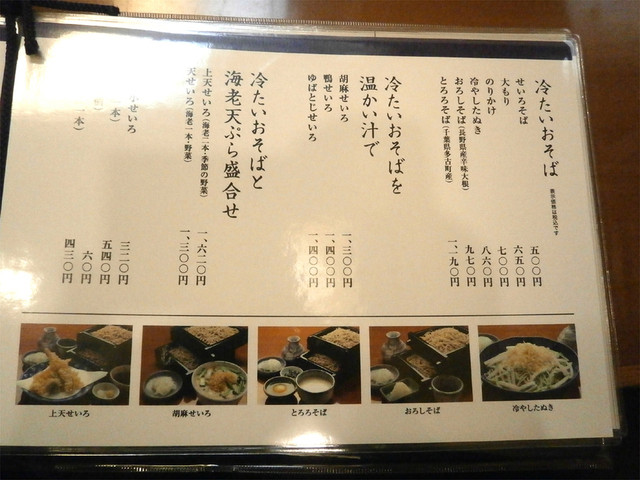 冷たいおそば
表示価格は税込です
せいろそば 五〇〇円
大もり 六五〇円
のりかけ 七〇〇円
冷やしたぬき 八六〇円
おろしそば(長野県産辛味大根) 九七〇円
とろろそば(千葉県多古町産) 一、一九〇円
冷たいおそばを
温かい汁で
胡麻せいろ 一、三〇〇円
鴨せいろ 一、四〇〇円
ゆばとじせいろ 一、四〇〇円
冷たいおそばと
海老天ぷら盛合せ
上天せいろ(海老二本・季節の野菜) 一、六二〇円
天せいろ(海老一本・野菜) 一、三〇〇円
せいろ 三二〇円
本) 五四〇円
六〇円
一本) 四三〇円
上天せいろ
胡麻せいろ
とろろそば
おろしそば
冷やしたぬき